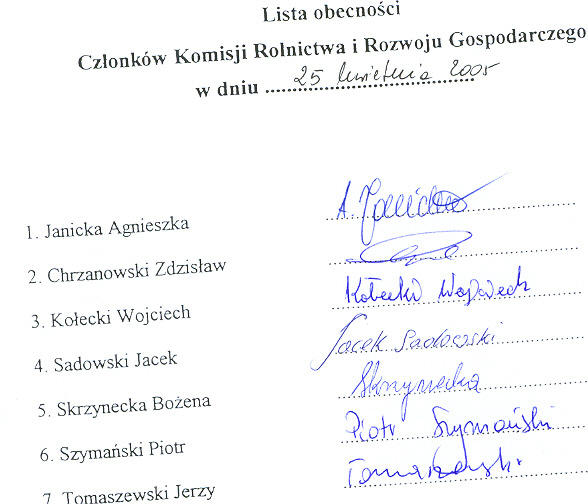 Lista obecności
Członków Komisji Rolnictwa i Rozwoju Gospodarczego
w dniu 25 kwietnia 2005
A. Janicka
1. Janicka Agnieszka
2. Chrzanowski Zdzisław
Kołecki Wojciech
3. Kołecki Wojciech
Jacek Sadowski
4. Sadowski Jacek
Skrzynecka
5. Skrzynecka Bożena
Piotr Szymański
6. Szymański Piotr
Tomaszewski
7. Tomaszewski Jerzy